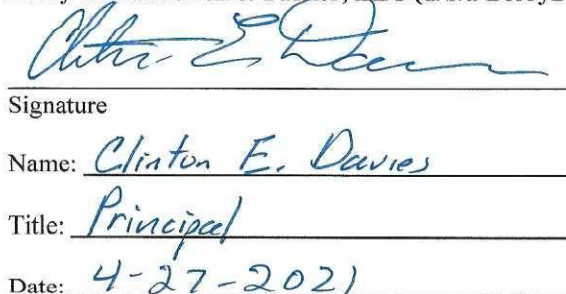 Signature
Name: Clinton E. Davies
Title: Principal
Date: 4-27-2021